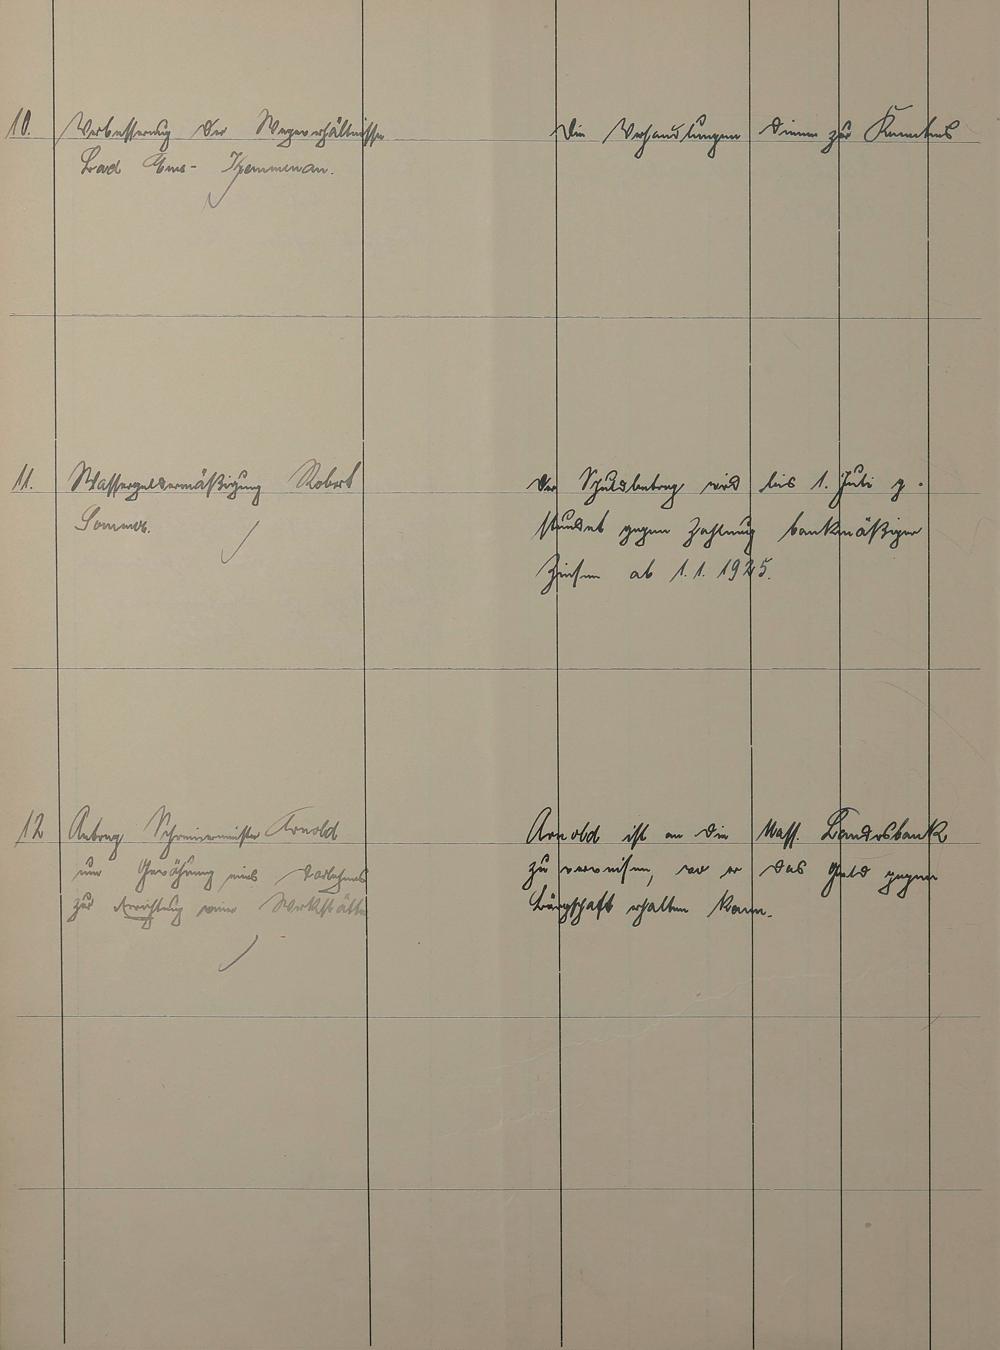 10. Verbesserung der Wegeverhältnisse
Bad Ems- Kemmenau.
Die Verhandlungen dienen zur Kenntnis
11. Wassergeldermäßigung Robert
Sommer.
Der Schuldbetrag wird bis 1. Juli g-
stundet gegen Zahlung bankmäßiger
Zinsen ab 1.1.1925.
12 Antrag Schreinermeister Arnold
um Gewährung eines Darlehens
zur Errichtung einer Werkstätte
Arnold ist an die Nass. Landesbank
zu verweisen, wo er das Geld gegen
Bürgschaft erhalten kann.